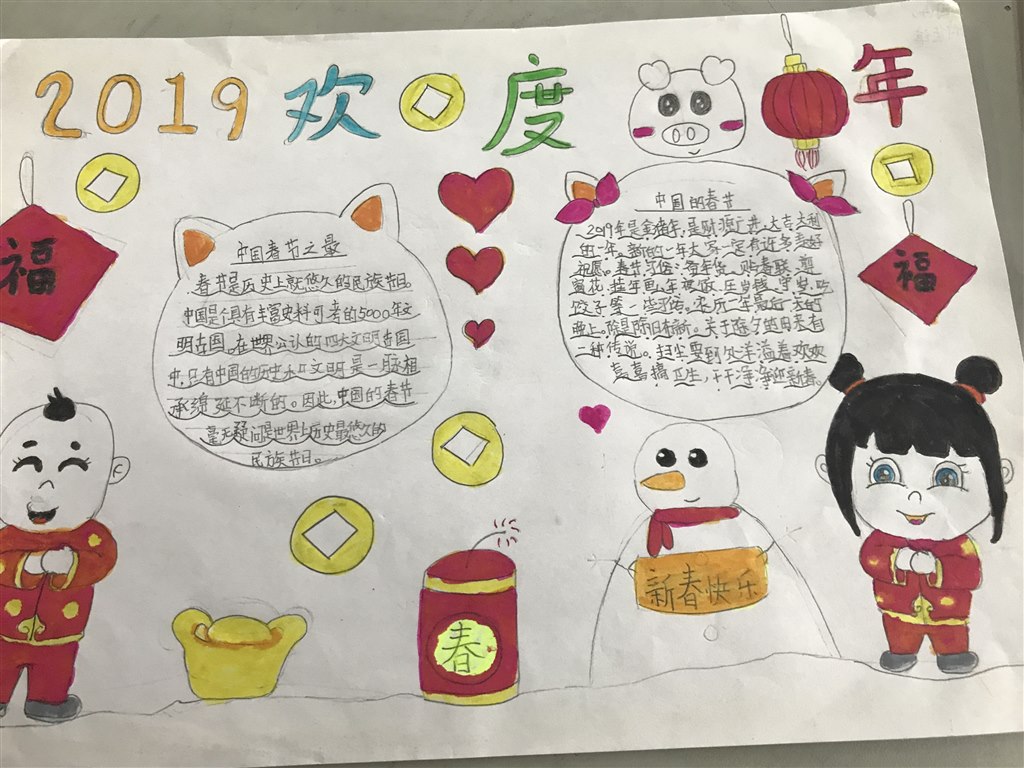 2019 欢度 年
福
中国春节之最
春节是历史上就悠久的民族节日。
中国是个具有丰富史料可考的5000年文
明古国。在世界公认的四大文明古国
中,只有中国的历史和文明是一脉相
承绵延不断的。因此,中国的春节
毫无疑问是世界上历史最悠久的
民族节日。
中国的春节
2019年是金猪年,是财源广进、大吉大利
的一年。新的一年大家一定有许多美好
祝愿。春节习俗:每年
贴春联 剪
窗花 挂年画 压岁钱 守岁 吃
饺子等一些习俗。农历一年最后一天的
晚上。除是除旧布新。关于除夕的由来有
一种传说。扫尘要到处洋溢着欢欢
喜喜搞卫生,干干净净迎新春。
福
新春快乐
春